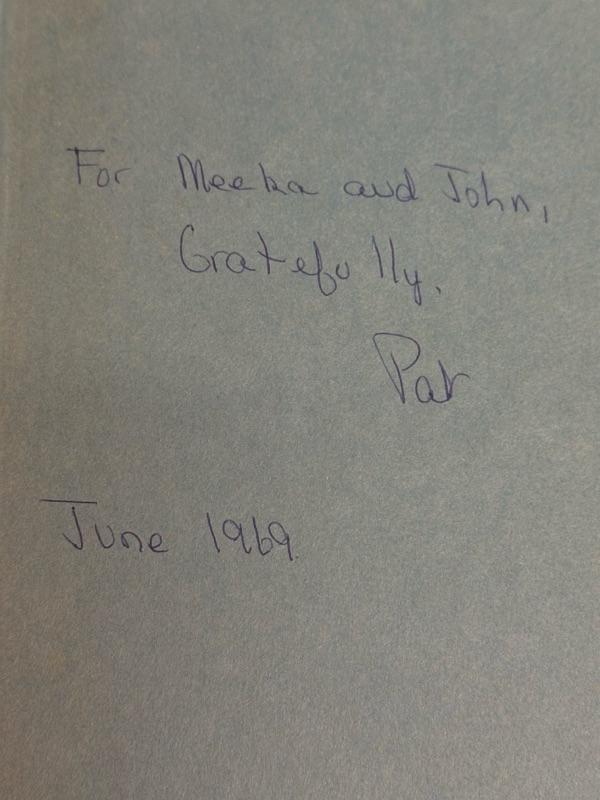 For Meeka and John,
Gratefully,
Pat
June 1969